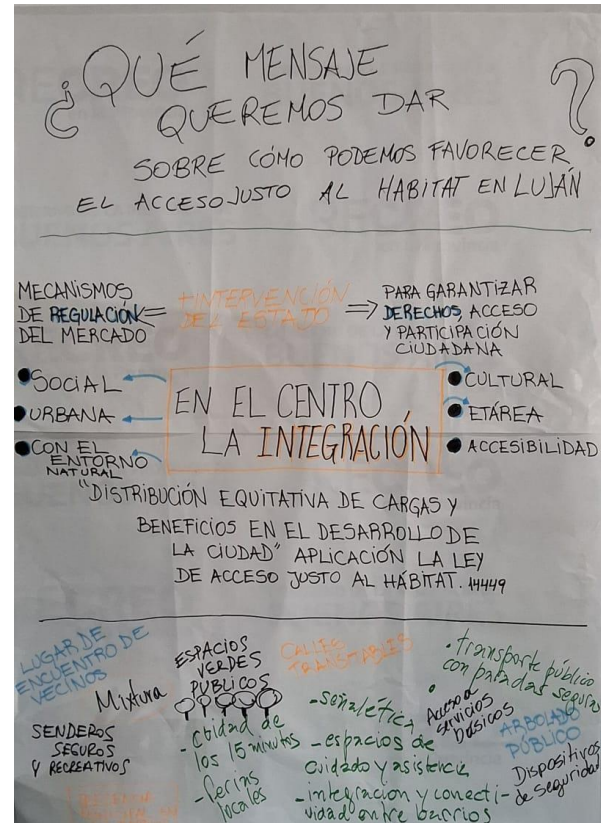 ¿QUÉ MENSAJE
QUEREMOS DAR ?
SOBRE CÓMO PODEMOS FAVORECER
EL ACCESO JUSTO AL HABITAT EN LUJÁN
MECANISMOS
DE REGULACIÓN
DEL MERCADO
+ INTERVENCIÓN
DEL ESTADO
PARA GARANTIZAR
DERECHOS, ACCESO
Y PARTICIPACIÓN
CIUDADANA
SOCIAL
URBANA
CON EL
ENTORNO
NATURAL
EN EL CENTRO
LA INTEGRACIÓN
CULTURAL
ETÁREA
ACCESIBILIDAD
"DISTRIBUCIÓN EQUITATIVA DE CARGAS Y
BENEFICIOS EN EL DESARROLLO DE
LA CIUDAD" APLICACIÓN LA LEY
DE ACCESO JUSTO AL HÁBITAT. 14449
LUGAR DE
ENCUENTRO DE
VECINOS
Mixtura
SENDEROS
SEGUROS
Y RECREATIVOS
ESPACIOS
VERDES
PUBLICOS
- Cuidad de
los 15 minutos
- ferias
locales
CALLES
TRANSITABLES
- señalética
- espacios de
cuidado y asistencia
- integración y conecti-
vidad entre barrios
• transporte público
con paradas seguras
• Acceso a
servicios
básicos
ARBOLADO
PÚBLICO
Dispositivos
de seguridad